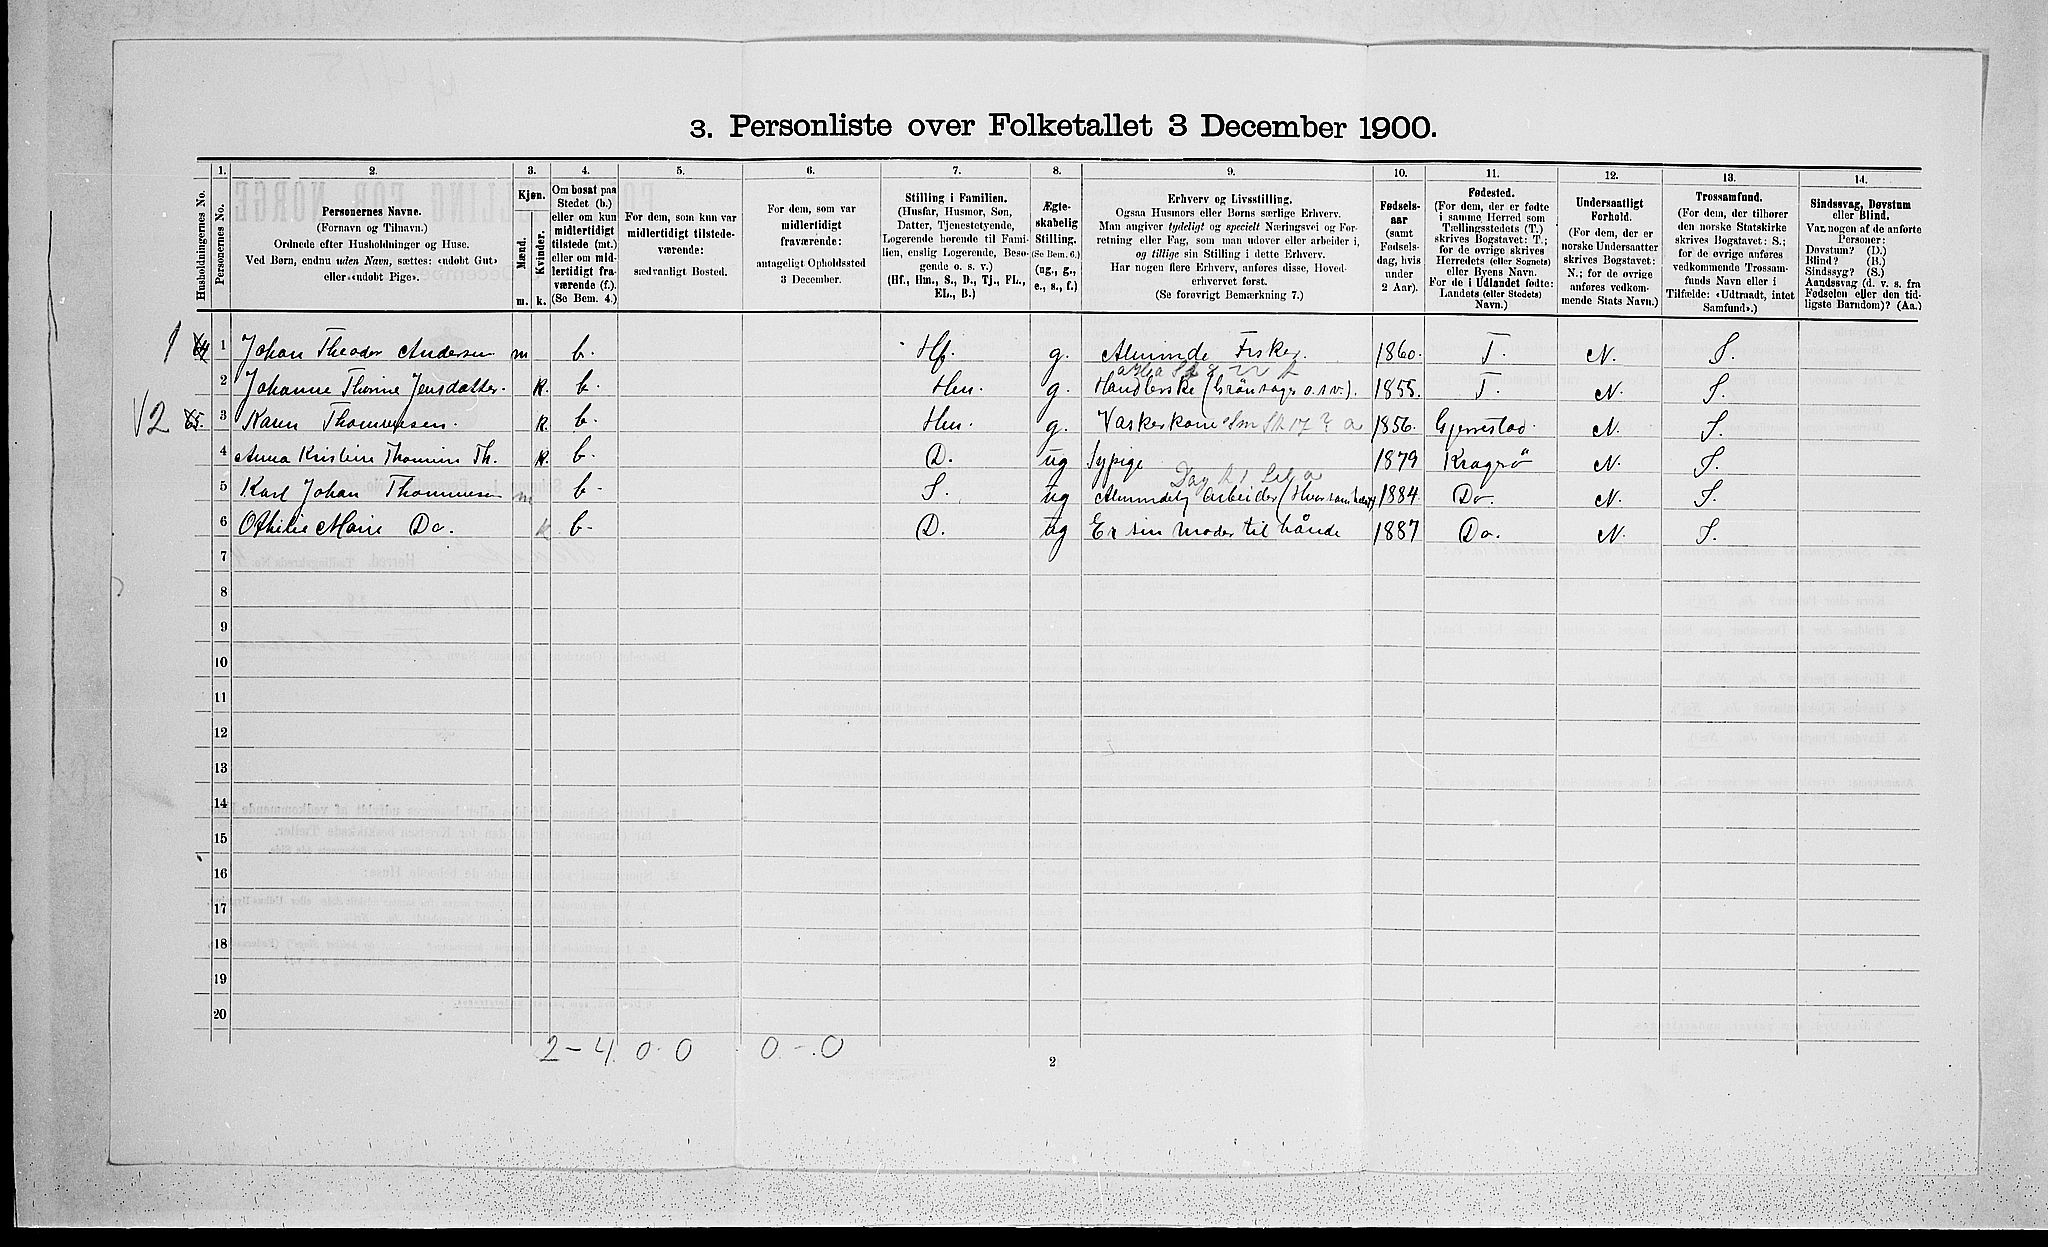 3. Personliste over Folketallet 3 December 1900.
Husholdningernes No.
1.
Personernes No.
2.
Personernes Navne.
(Fornavn og Tilnavn.)
Ordnede efter Husholdninger og Huse.
Ved Børn, endnu uden Navn, sættes: «udøbt Gut»
eller «udøbt Pige».
3.
Kjøn.
Mænd.
Kvinder.
m.
k.
4.
Om bosat paa
Stedet (b.)
eller om kun
midlertidigt
tilstede (mt.)
eller om mid-
lertidigt fra-
værende (f.).
(Se Bem. 4.)
5.
For dem, som kun var
midlertidigt tilstede-
værende:
sædvanligt Bosted.
6.
For dem, som var
midlertidigt
fraværende:
antageligt Opholdssted
3 December.
7.
Stilling i Familien.
(Husfar, Husmor, Søn,
Datter, Tjenestetyende,
Logerende hørende til Fami-
lien, enslig Logerende, Besø-
gende o. s. v.)
(Hf., Hm., S., D., Tj., FL.,
EL., B.)
8.
Ægte-
skabelig
Stilling.
(Se Bem. 6.)
(ug., g.,
e., s., f.)
9.
Erhverv og Livsstilling.
Ogsaa Husmors eller Børns særlige Erhverv.
Man angiver tydeligt og specielt Næringsvei og For-
retning eller Fag, som man udøver eller arbeider i,
og tillige sin Stilling i dette Erhverv.
Har nogen flere Erhverv, anføres disse, Hoved-
erhvervet først.
(Se forøvrigt Bemærkning 7.)
10.
Fødsels-
aar
(samt
Fødsels-
dag, hvis
under
2 Aar).
11.
Fødested.
(For dem, der er fødte
i samme Herred som
Tællingsstedets (T.)
skrives Bogstavet: T.;
for de øvrige skrives
Herredets (eller Sognets)
eller Byens Navn.
For de i Udlandet fødte:
Landets (eller Stedets)
Navn.)
12.
Undersaatligt
Forhold.
(For dem, der er
norske Undersaatter
skrives Bogstavet:
N.; for de øvrige
anføres vedkom-
mende Stats Navn.)
13.
Trossamfund.
(For dem, der tilhører
den norske Statskirke
skrives Bogstavet: S.;
for de øvrige anføres
vedkommende Trossam-
funds Navn eller i
Tilfælde: «Udtraadt, intet
Samfund».)
14.
Sindssvag, Døvstum
eller Blind.
Var nogen af de anførte
Personer:
Døvstum? (D.)
Blind? (B.)
Sindssyg? (S.)
Aandssvag (d. v. s. fra
Fødselen eller den tid-
ligste Barndom)? (Aa.)
1 64 1 Johan Theodor Andersen m b. Hf. g. Almindl. Fisker. 1860. T. N. S.
2 Johanne Thorine Jensdatter. k. b. Hm. g. Handlerske (Grönsager o.s.v.). 1855. T. N. S.
V2 65. 3 Karen Thommesen. k. b. Hm. g. Vaskerkone 1856. Gjerrestad. N. S.
4 Anna Kristine Thomine Th. k. b. D. ug Sypige 1879 Kragerö N. S.
5 Karl Johan Thommesen m b. S. ug Almindelig Arbeider 1884. Do. N. S.
6 Othilie Marie Do. k b. D. ug Er sin moder til hånde 1887 Do. N. S.
7
8
9
10
11
12
13
14
15
16
17
18
19
20
2 – 4 0 . 0 0 – . 0
2